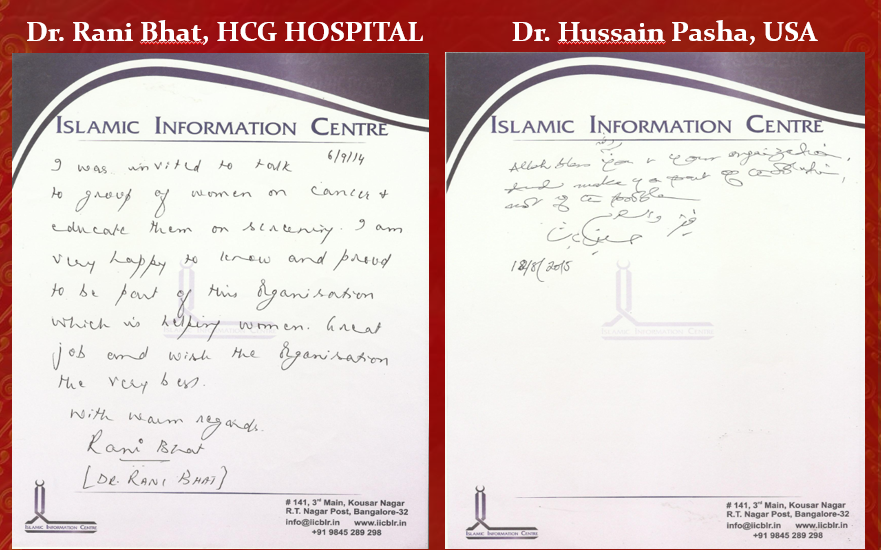 Dr. Rani Bhat, HCG HOSPITAL
ISLAMIC INFORMATION CENTRE
6/9/14
I was invited to talk
to group of women on cancer &
educate them on screening. I am
very happy to know and proud
to be part of this Organisation
which is helping women. Great
job and wish the Organisation
the very best.
With warm regards.
Rani Bhat
[DR. RANI BHAT]
ISLAMIC INFORMATION CENTRE
ISLAMIC INFORMATION CENTRE
# 141, 3rd Main, Kousar Nagar
R.T. Nagar Post, Bangalore-32
info@iicblr.in www.iicblr.in
+91 9845 289 298
Dr. Hussain Pasha, USA
ISLAMIC INFORMATION CENTRE
Allah bless you & your organization,
and make you part of a solution,
not of a problem
18/8/2015
ISLAMIC INFORMATION CENTRE
ISLAMIC INFORMATION CENTRE
# 141, 3rd Main, Kousar Nagar
R.T. Nagar Post, Bangalore-32
info@iicblr.in www.iicblr.in
+91 9845 289 298